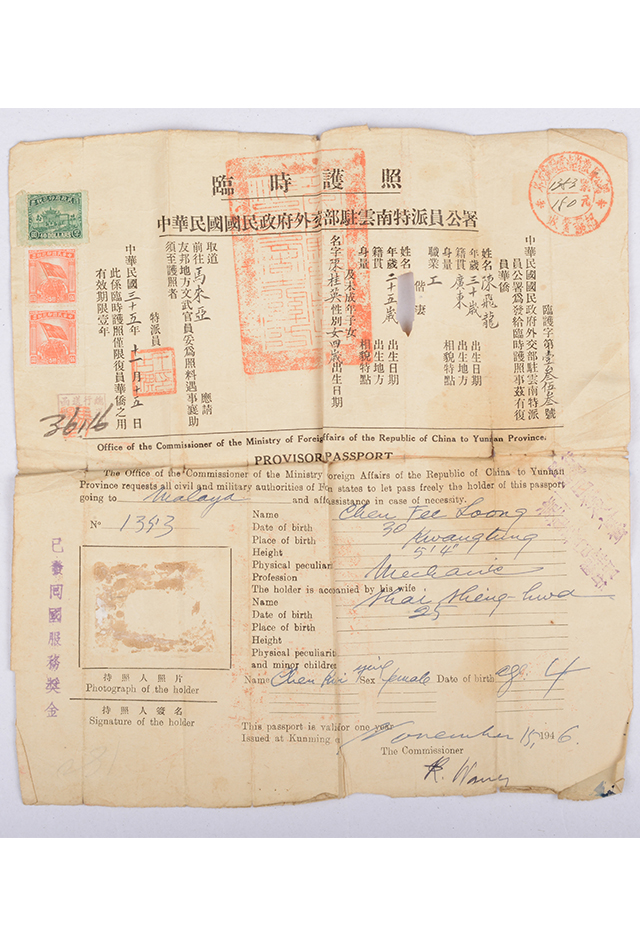 臨時護照
中華民國國民政府外交部駐雲南特派員公署
臨護字第壹叁伍叁號
中華民國國民政府外交部駐雲南特派
員公署為發給臨時護照事茲有復
員華僑
姓名 陳飛龍 出生日期
年歲 三十歲 出生地方
籍貫 廣東 相貌特點
身量
職業 工
偕妻
姓名 出生日期
年歲 二十五歲 出生地方
籍貫 相貌特點
身量
及未成年子女
名字 陳桂英 性別 女 四歲 出生日期
取道
前往 馬來亞 應請
友邦地方文武官員妥為照料遇事襄助
須至護照者
特派員
中華民國三十五年十一月十五日
此係臨時護照僅限復員華僑之用
有效期限壹年
1393
150
36116
Office of the Commissioner of the Ministry of Foreign Affairs of the Republic of China to Yunnan Province.
PROVISOR PASSPORT
The Office of the Commissioner of the Ministry oreign Affairs of the Republic of China to Yunnan
Province requests all civil and military authorities of states to let pass freely the holder of this passport
going to Malaya and assistance in case of necessity.
Nº 1393
Name Chen Fee Loong
Date of birth 30
Place of birth Kwangtung
Height 5'4"
Physical peculiari
Profession Mechanic
The holder is accompanied by his wife
Name Thai Sheng-hwa
Date of birth 25
Place of birth
Height
Physical peculiarit
and minor children
Name Chen Kwi ying Sex female Date of birth age 4
已發回國服務獎金
持照人照片
Photograph of the holder
持照人簽名
Signature of the holder
This passport is valid for one year
Issued at Kunming November 15, 1946.
The Commissioner